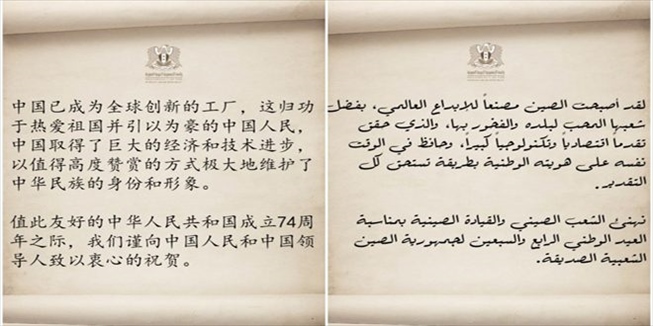 中国已成为全球创新的工厂，这归功
于热爱祖国并引以为豪的中国人民，
中国取得了巨大的经济和技术进步，
以值得高度赞赏的方式极大地维护了
中华民族的身份和形象。
值此友好的中华人民共和国成立74周
年之际，我们谨向中国人民和中国领
导人致以衷心的祝贺。
لقد أصبحت الصين مصنعاً للإبداع العالمي، بفضل
شعبها المحب لبلده والفخور بها، والذي حقق
تقدما اقتصادياً وتكنولوجياً كبيراً، وحافظ في الوقت
نفسه على هويته الوطنية بطريقة تستحق كل
التقدير.
نهنئ الشعب الصيني والقيادة الصينية بمناسبة
العيد الوطني الرابع والسبعين لجمهورية الصين
الشعبية الصديقة.